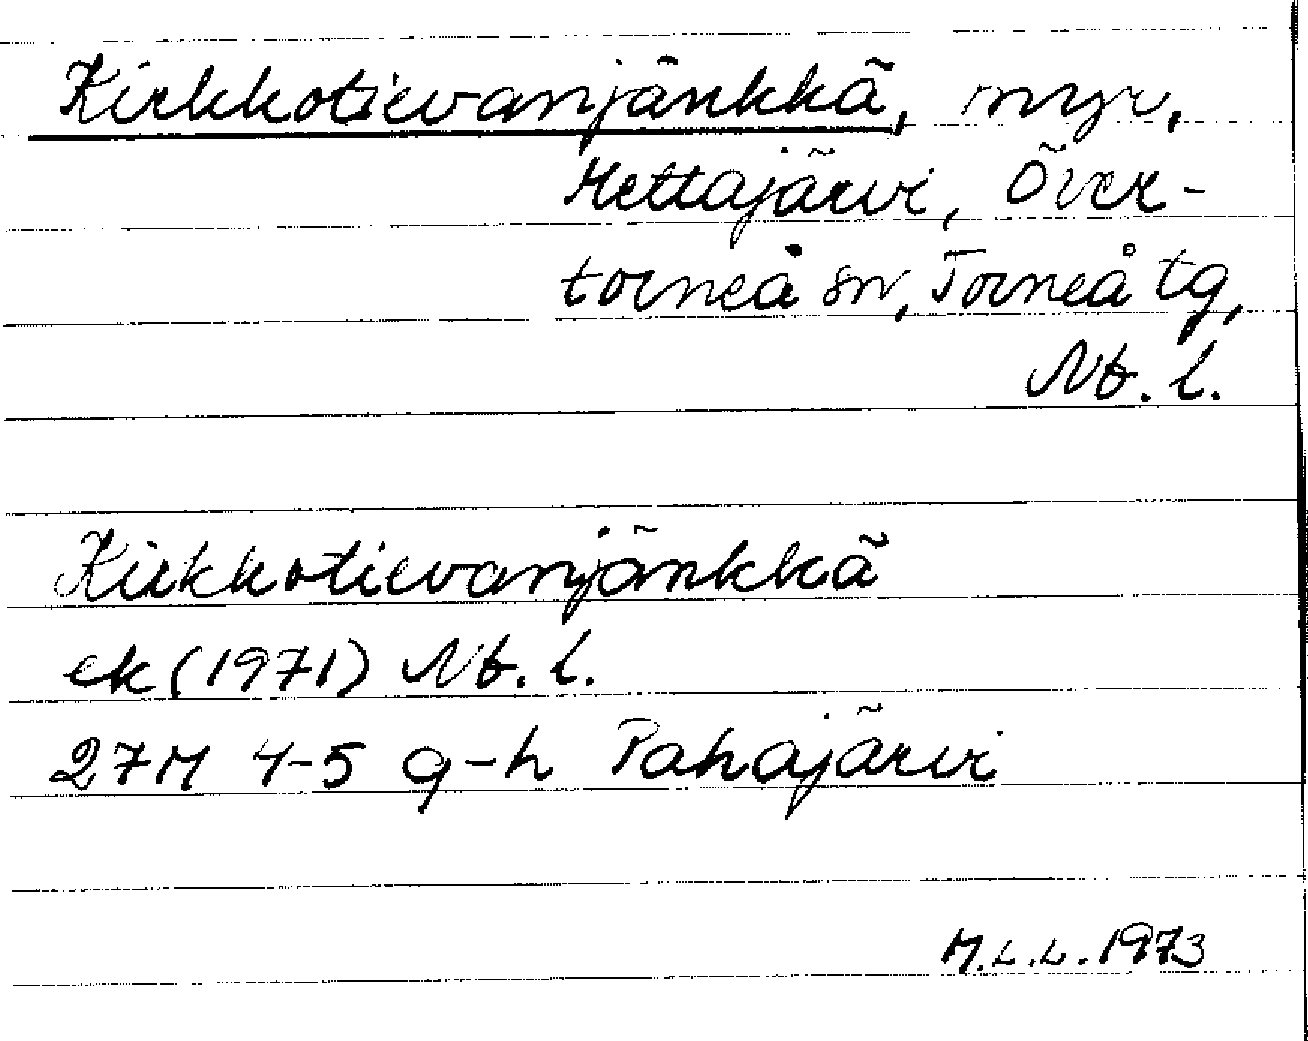 Kirkkotievanjänkkä, myr,
Mettäjärvi, Över-
torneå sn, Torneå tg,
Nb. l.
Kirkkotievanjänkkä
ek (1971) Nb. l.
27M 4-5 g-h Pahajärvi
M.L.L. 1973